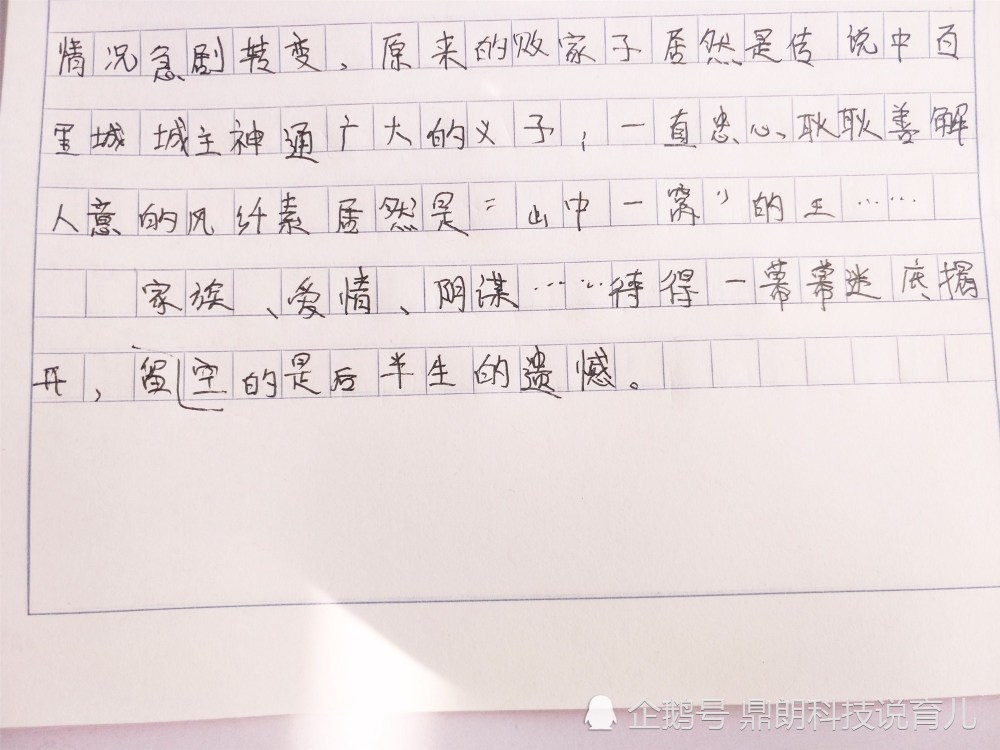 情况急剧转变、原来的败家子居然是传说中百
里城城主神通广大的义子，一直忠心耿耿善解
人意的风纤素居然是“山中一窝”的王……
家族、爱情、阴谋……待得一幕幕迷底揭
开，留空的是后半生的遗憾。
企鹅号 鼎朗科技说育儿